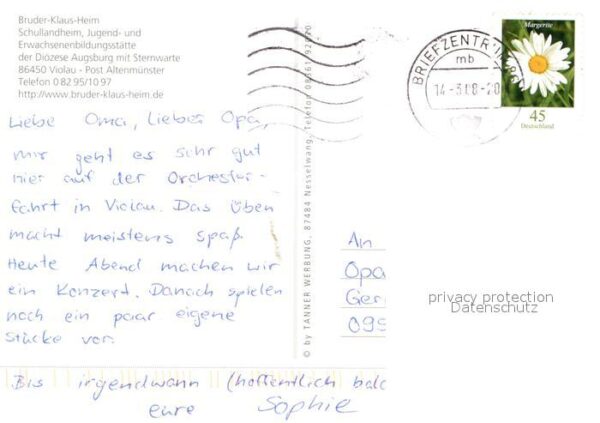 Bruder-Klaus-Heim
Schullandheim, Jugend- und
Erwachsenenbildungsstätte
der Diözese Augsburg mit Sternwarte
86450 Violau - Post Altenmünster
Telefon 0 82 95/10 97
http://www.bruder-klaus-heim.de
Liebe Oma, lieber Opa,
mir geht es sehr gut
hier auf der Orchester-
fahrt in Violau. Das Üben
macht meistens spaß.
Heute Abend machen wir
ein Konzert. Danach spielen
noch ein paar eigene
Stücke vor.
Bis irgendwann (hoffentlich bald
eure Sophie
© by TANNER WERBUNG, 87484 Nesselwang, Telefon
BRIEFZENTRUM
mb
14-3.08-20
Margerite
45
Deutschland
An
Opa
Ger
099
privacy protection
Datenschutz